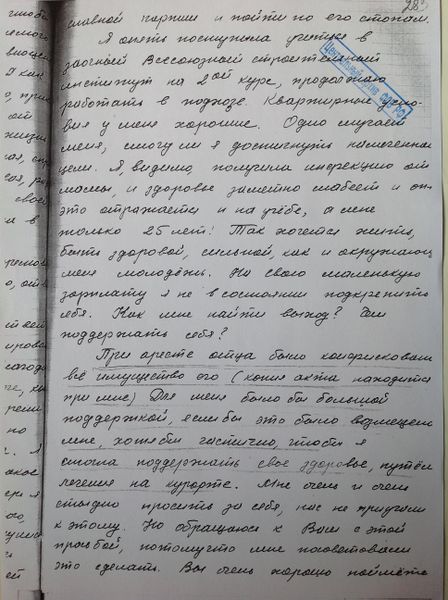 28
Центральный архив ФСБ РФ
славной партии и пойти по его стопам.
Я опять поступила учиться в
заочный Всесоюзный строительный
институт на 2ой курс, продолжаю
работать в подхозе. Квартирные усло-
вия у меня хорошие. Одно смущает
меня, смогу ли я достигнуть намеченной
цели. Я, видимо, получила инфекцию от
мамы, и здоровье заметно слабеет и
это отражается и на учёбе, а мне
только 25 лет! Так хочется жить,
быть здоровой, сильной, как и окружающая
меня молодёжь. На свою маленькую
зарплату я не в состоянии подкрепить
себя. Как мне найти выход? Чем
поддержать себя?
При аресте отца было конфисковано
всё имущество его (копия акта находится
при мне) Для меня было бы большой
поддержкой, если бы это было возмещено
мне, хотя бы частично, чтобы я
смогла поддержать своё здоровье, путём
лечения на курорте. Мне очень и очень
стыдно просить за себя, нас не приучили
к этому. Но обращаюсь к Вам с этой
просьбой, потому что мне посоветовали
это сделать. Вы очень хорошо поймёте